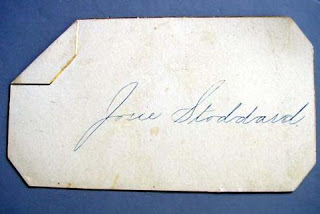 Josie Stoddard